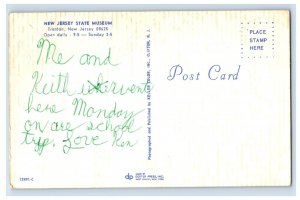 NEW JERSEY STATE MUSEUM
Trenton, New Jersey 08625
Open daily - 9-5 — Sunday 2-5
PLACE
STAMP
HERE
Post Card
Me and
Keith went
here Monday
on are school
trip. Love Ken
Photographed and Published by KELLER COLOR, INC., CLIFTON, N. J.
dp